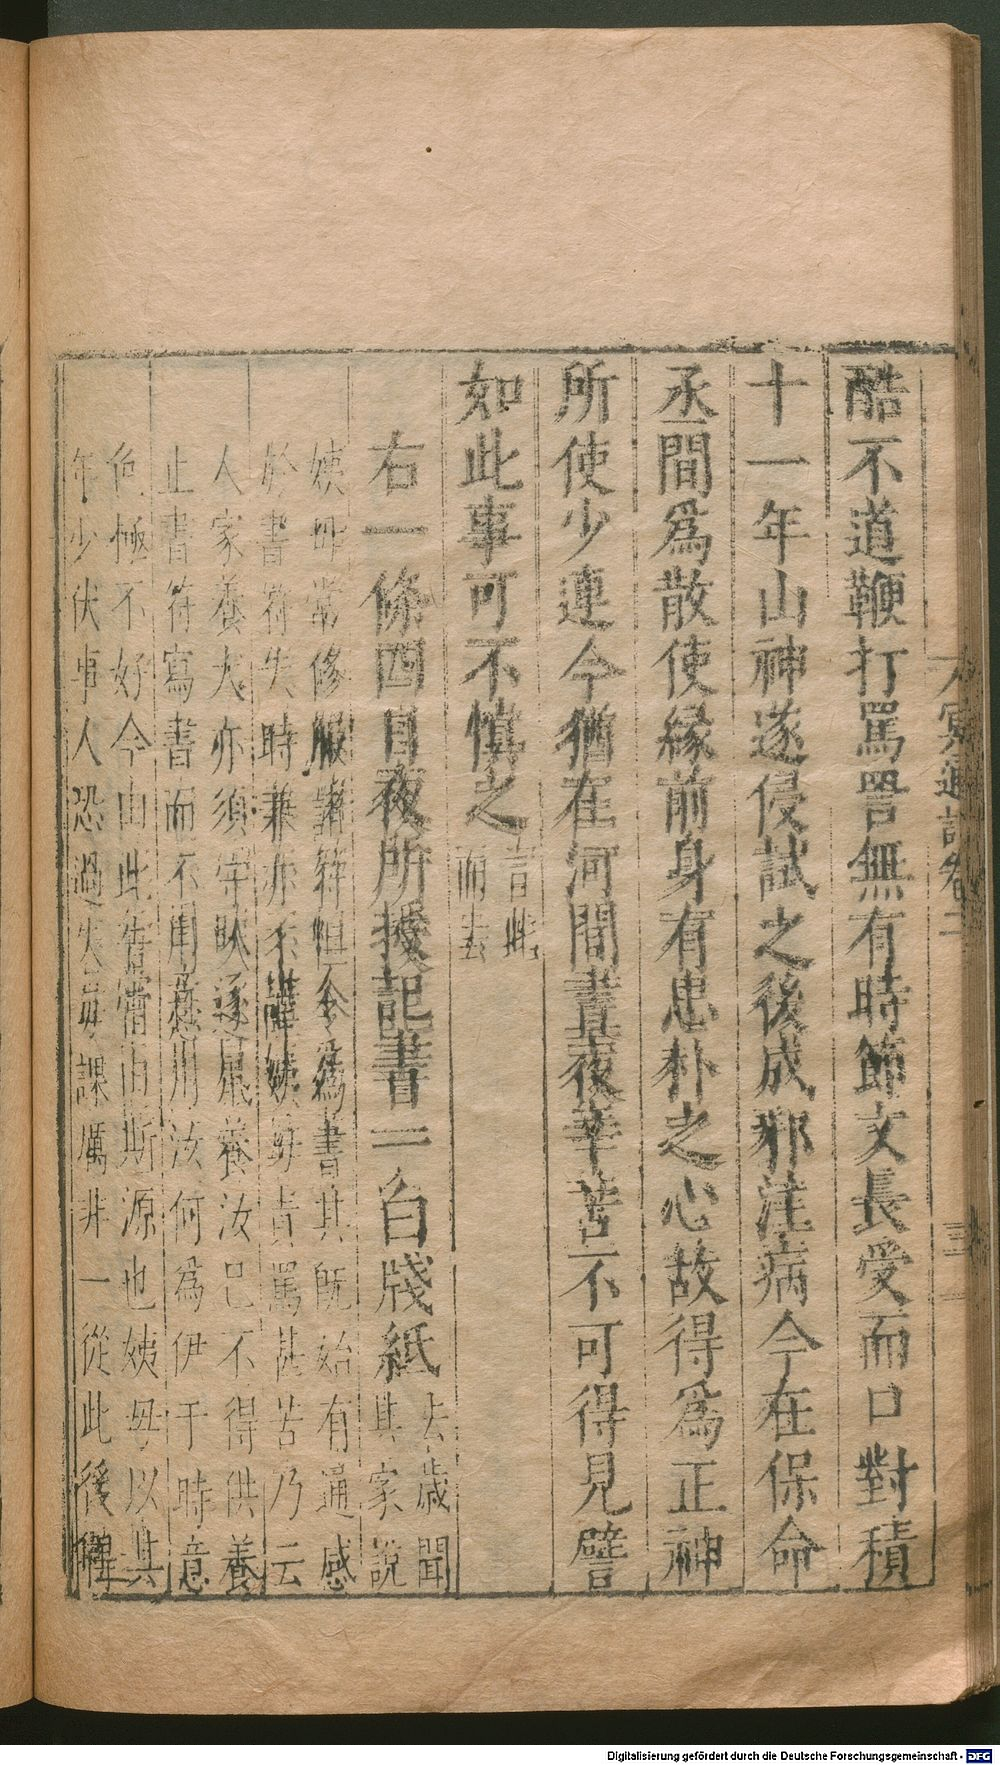 酷不道鞭打罵詈無有時節文長受而口對積
十一年山神遂侵試之後成邪注病今在保命
丞間為散使緣前身有忠朴之心故得為正神
所使少連今猶在河間晝夜辛苦不可得見譬
如此事可不慎之言此
而去
右一條四月夜所授記書一白牋紙去歲聞
其家說
姨母常修服諸符恒令為書其既始有通感
於書符失時兼亦不謹姨母責罵甚苦乃云
人家養犬亦須守吠逐鼠養汝已不得供養
止書符寫書而不用養汝何為伊于時意
色極不好今由此告當由斯源也姨母以其
年少伏事人恐過失每課厲非一從此後
冥通記卷二
三
Digitalisierung gefördert durch die Deutsche Forschungsgemeinschaft - DFG